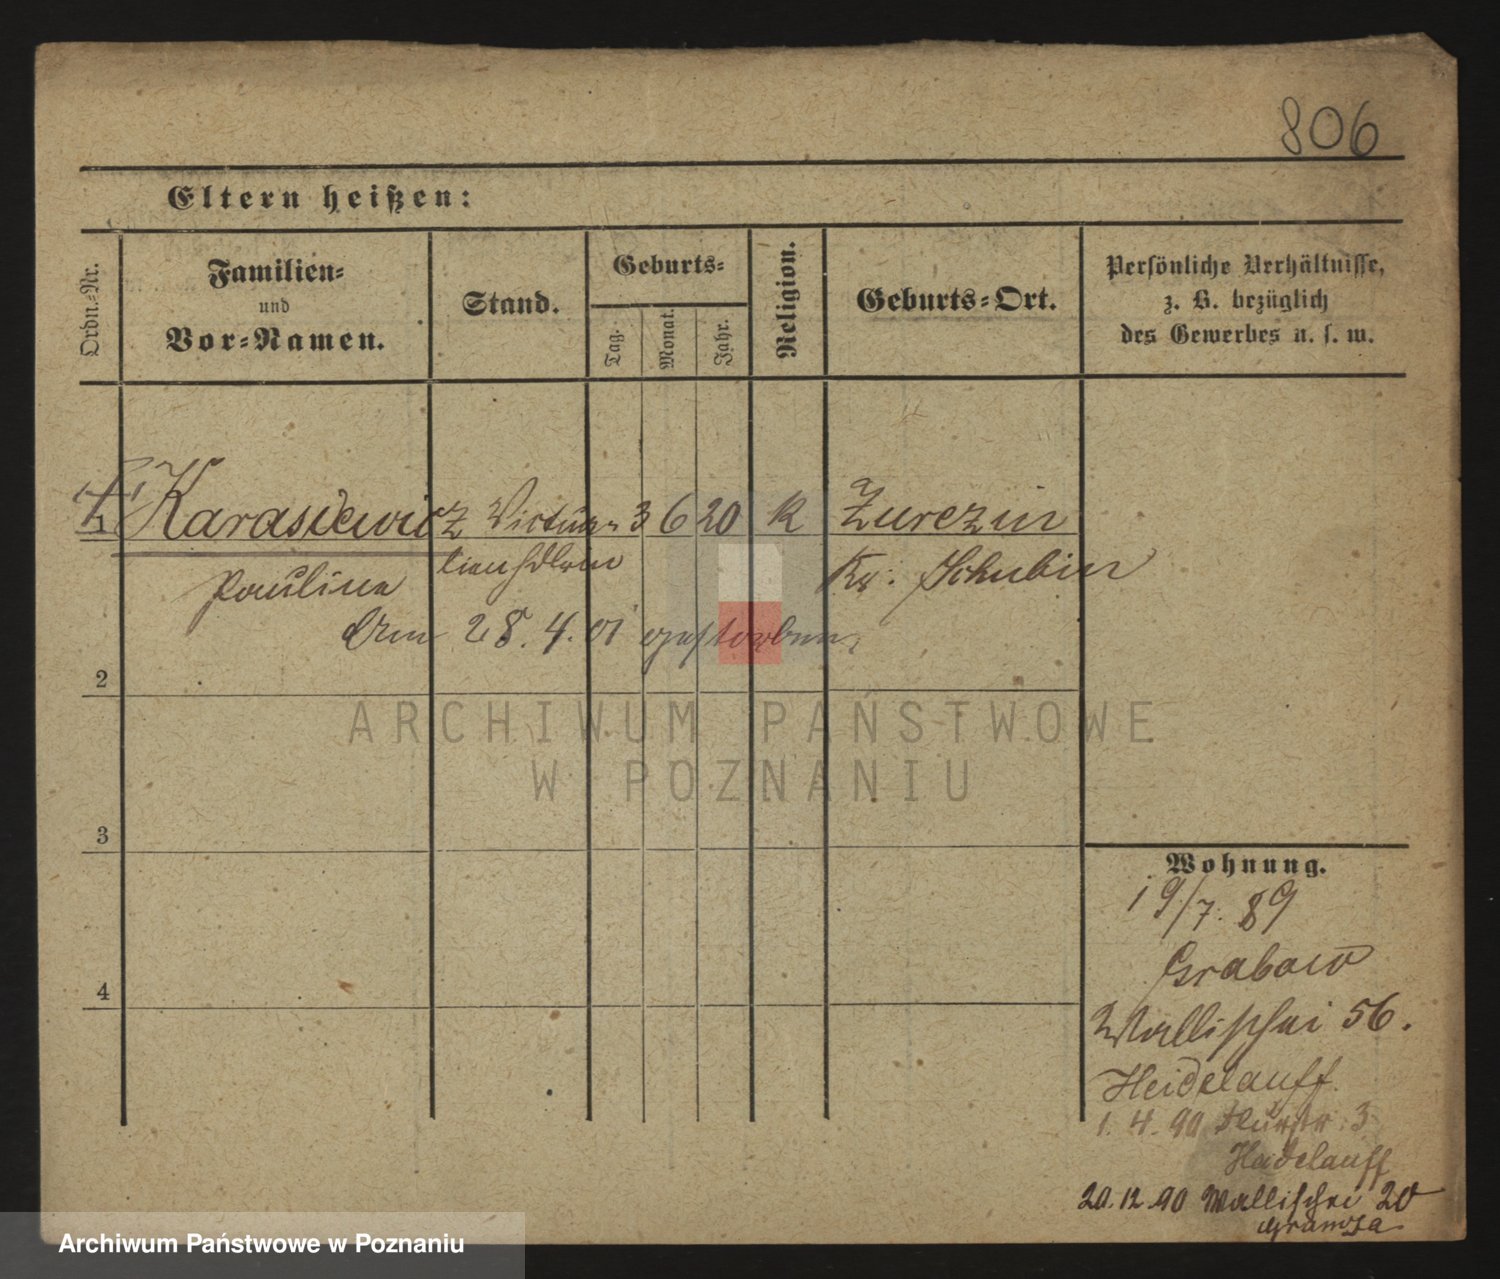 806
Eltern heißen:
Ordn.-Nr.
Familien-
und
Vor-Namen.
Stand.
Geburts-
Tag.
Monat.
Jahr.
Religion.
Geburts-Ort.
Persönliche Verhältnisse,
z. B. bezüglich
des Gewerbes u. s. w.
1 Karasiewicz Victua- 3 6 20 K Zurczin
Pauline lienhdlerin Kr. Schubin
Am 28. 4. 01 gestorben.
2
3
4
Wohnung.
19/7. 89
Grabow
Wallischei 56.
Heidelauff.
1. 4. 90 3
Heidelauff
20. 12. 90 Wallischei 20
ARCHIWUM PAŃSTWOWE
W POZNANIU
Archiwum Państwowe w Poznaniu